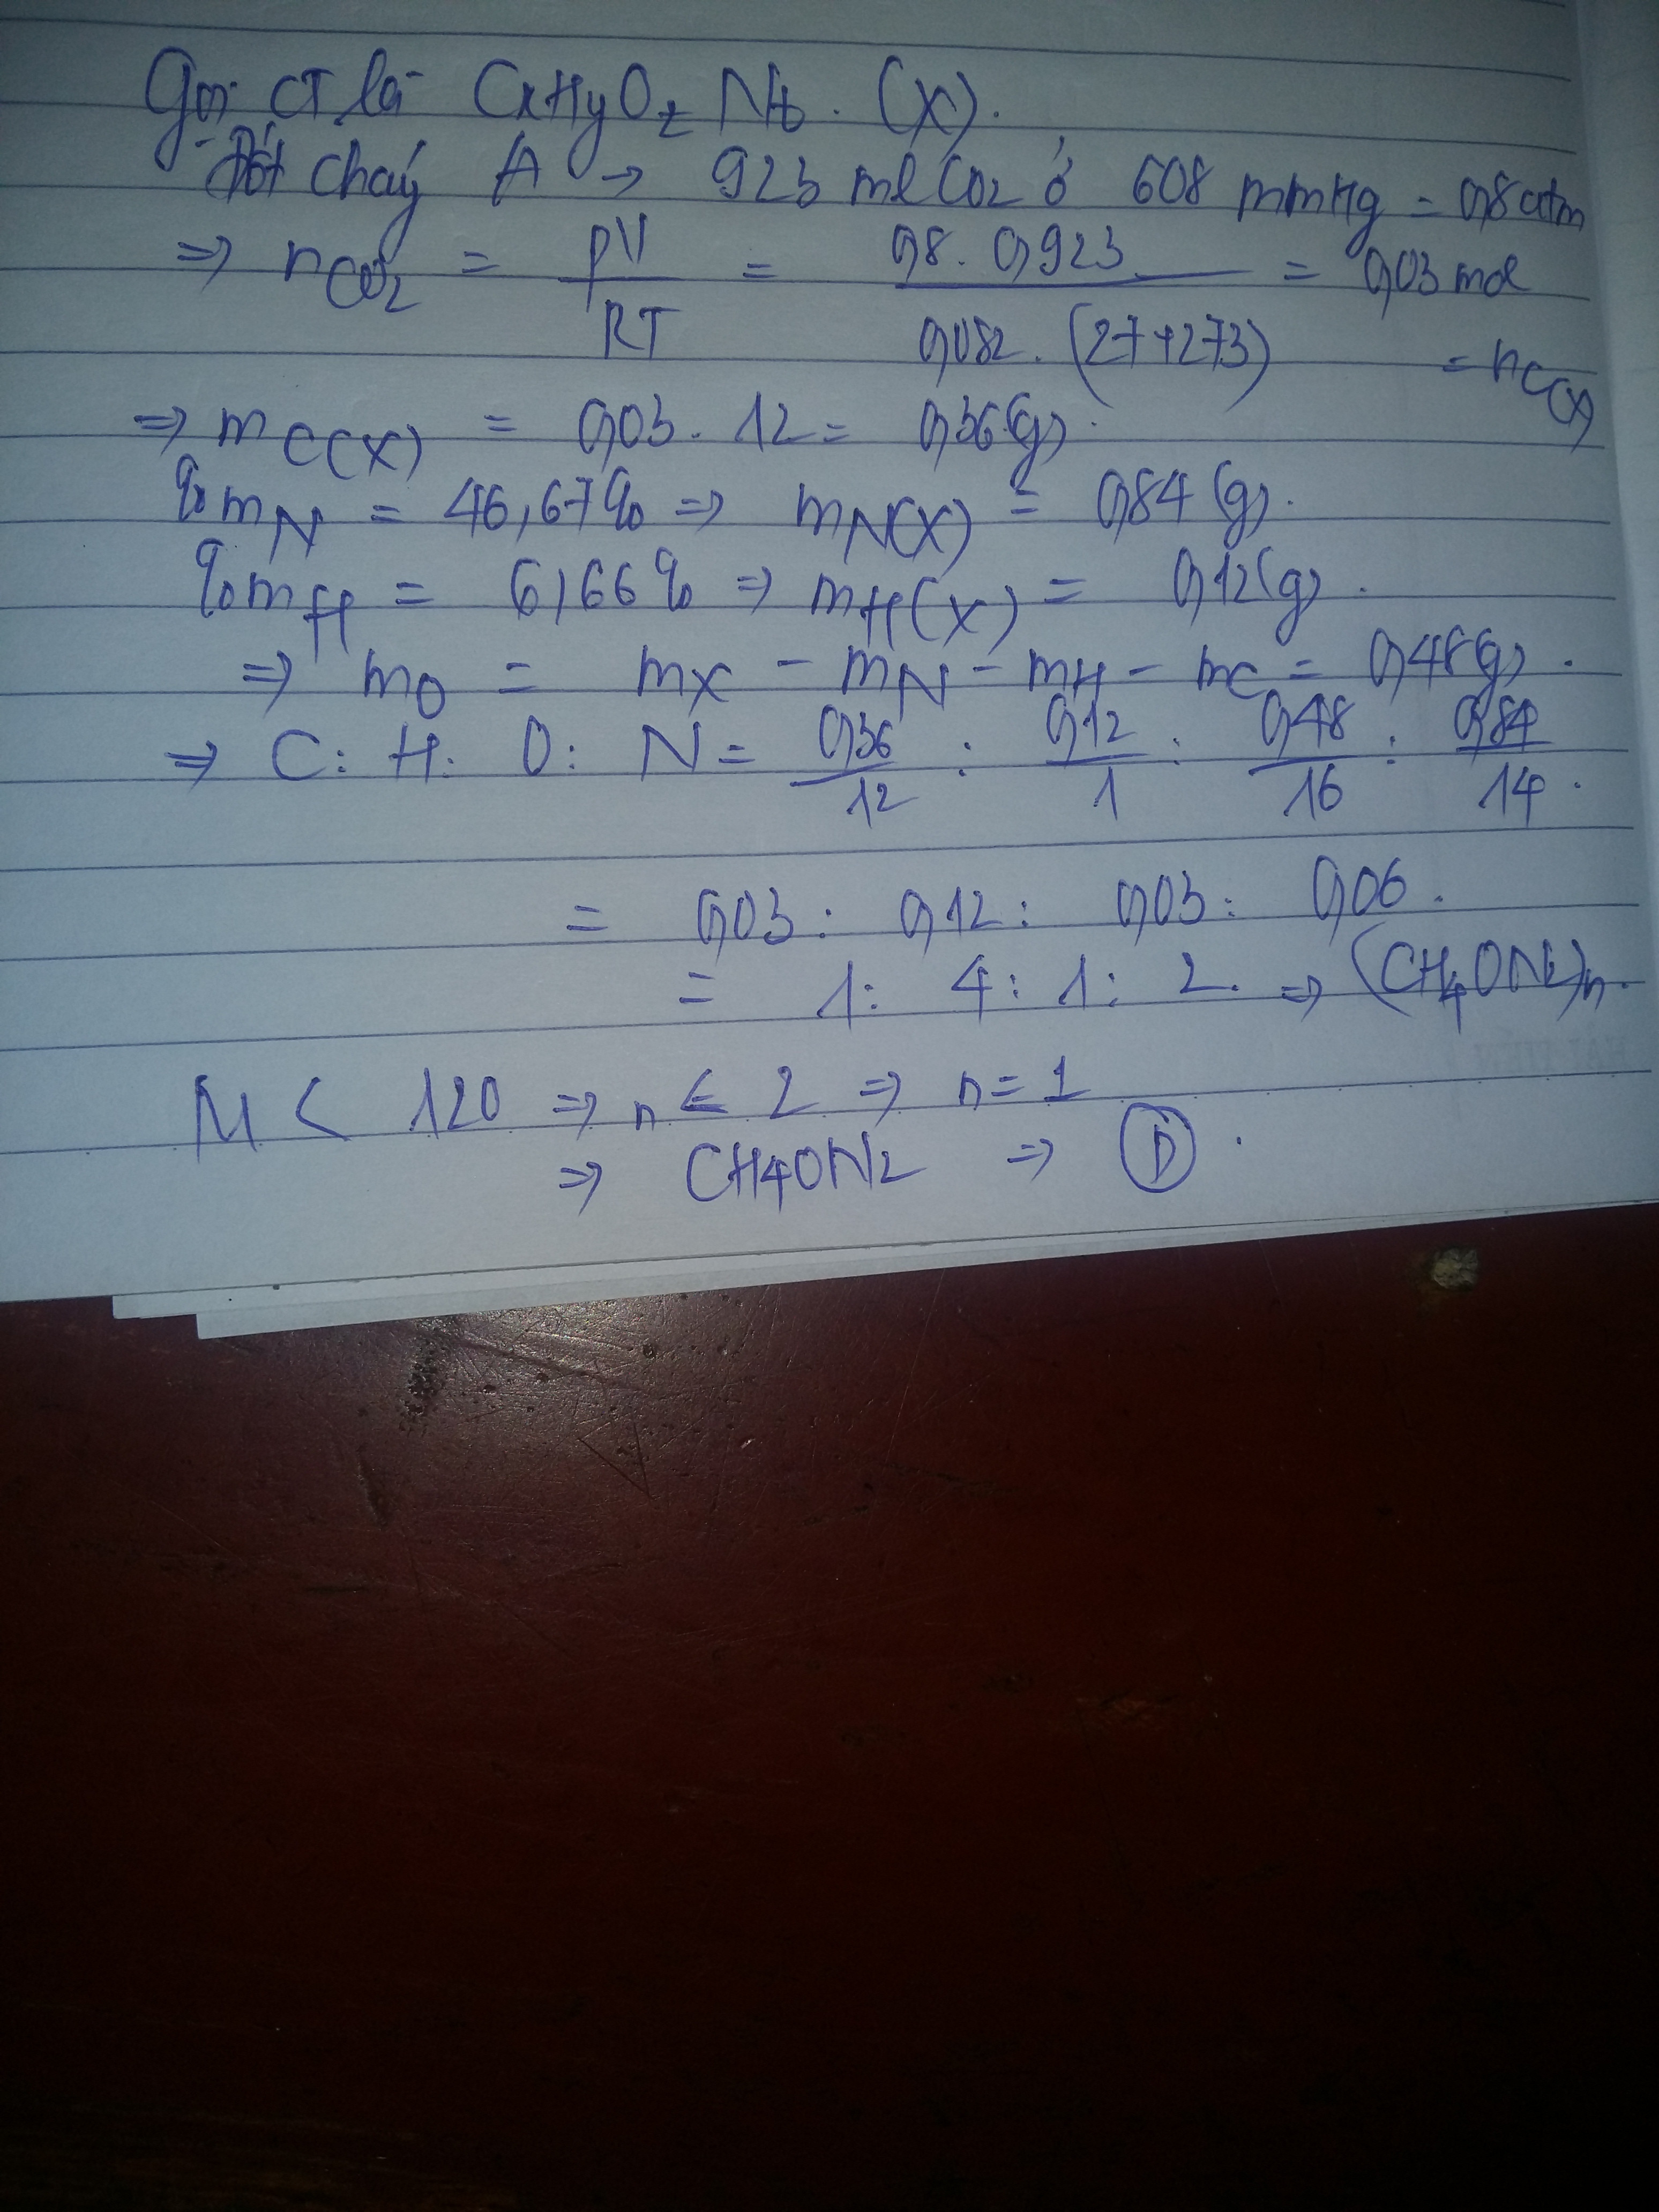 Gọi CT là CxHyOzNt. (X).
- Đốt cháy A → 923 ml CO2 ở 608 mmHg = 0,8 atm
⇒ nCO2 = pV/RT = 0,8. 0,923/0,082. (27+273) = 0,03 mol
= nC(X)
⇒ mC(X) = 0,03. 12 = 0,36(g).
%mN = 46,67% ⇒ mN(X) = 0,84 (g).
%mH = 6,66% ⇒ mH(X) = 0,12(g).
⇒ mO = mX - mN - mH - mC = 0,48(g).
⇒ C: H: O: N = 0,36/12 : 0,12/1 : 0,48/16 : 0,84/14.
= 0,03: 0,12: 0,03: 0,06.
= 1: 4: 1: 2. ⇒ (CH4ON2)n.
M < 120 ⇒ n ≤ 2 ⇒ n = 1
⇒ CH4ON2 ⇒ D.